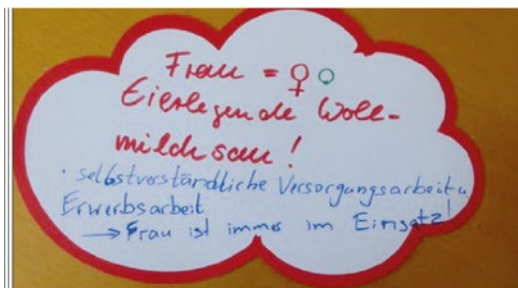 Frau = ♀
Eierlegende Woll-
milchsau!
· selbstverständliche Versorgungsarbeit u.
Erwerbsarbeit
→ Frau ist immer im Einsatz!